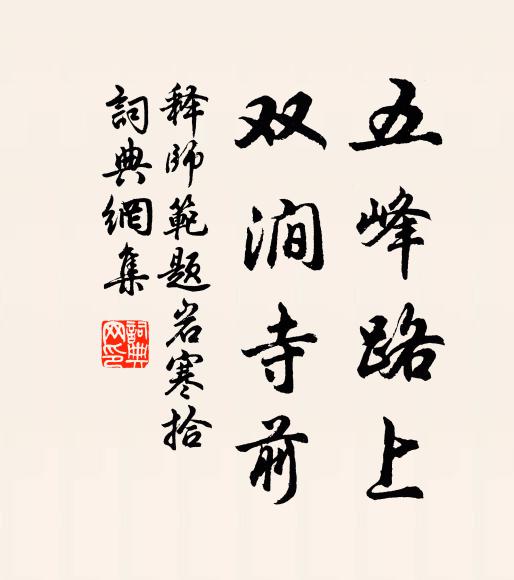 五峰路上
双涧寺前
释師範题岩寒拾
詞典網集
詞典网印